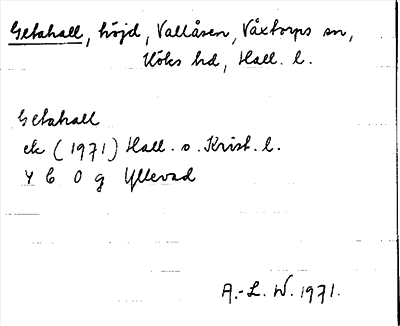 Getahall, höjd, Vallåsen, Våxtorps sn,
Höks hd, Hall. l.
Getahall
ek (1971) Hall. o. Krist. l.
4 C 0 g Yllevad
A.-L. W. 1971.